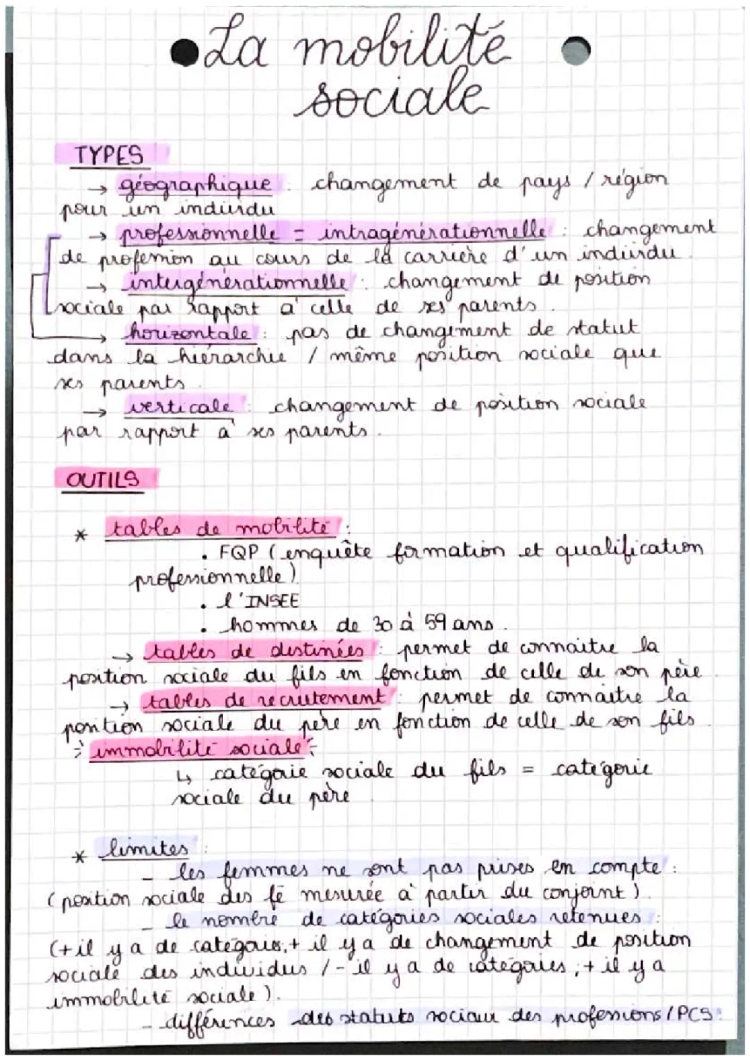 La mobilité
sociale
TYPES
→ géographique : changement de pays / région
pour un individu
→ professionnelle = intragénérationnelle : changement
de profession au cours de la carrière d'un individu.
→ intergénérationnelle : changement de position
sociale par rapport à celle de ses parents.
→ horizontale : pas de changement de statut
dans la hiérarchie / même position sociale que
ses parents.
→ verticale : changement de position sociale
par rapport à ses parents.
OUTILS
* tables de mobilité :
. FQP (enquête formation et qualification
professionnelle)
. l'INSEE
. hommes de 30 à 59 ans.
→ tables de destinées : permet de connaitre la
position sociale du fils en fonction de celle de son père.
→ tables de recrutement : permet de connaitre la
position sociale du père en fonction de celle de son fils.
immobilité sociale :
↳ catégorie sociale du fils = catégorie
sociale du père
* limites :
- les femmes ne sont pas prises en compte :
(position sociale des fe mesurée à partir du conjoint).
- le nombre de catégories sociales retenues :
(+ il y a de catégories, + il y a de changement de position
sociale des individus / - il y a de catégories, + il y a
immobilité sociale).
- différences des statuts sociaux des professions / PCS.